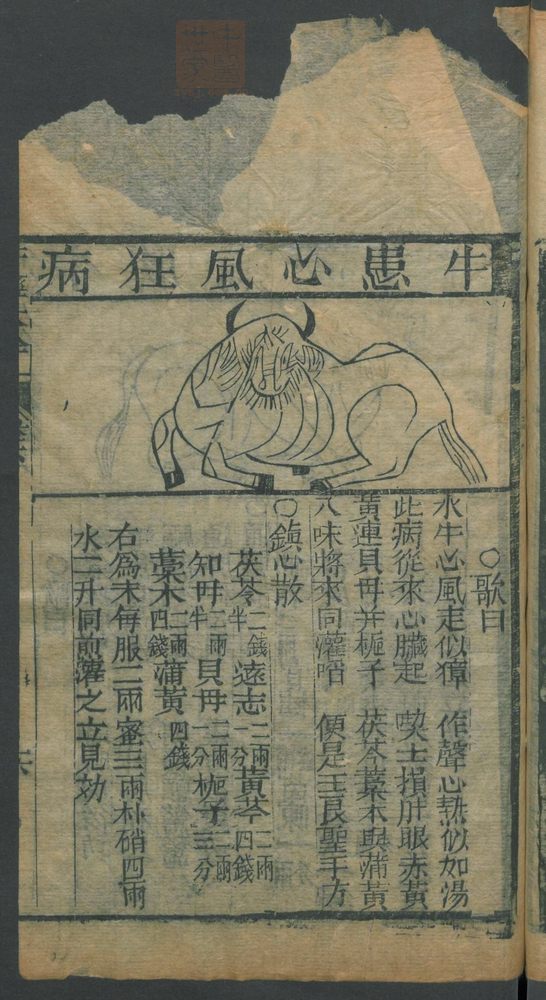 牛患心風狂病
○歌曰
水牛心風走似獐 作聲心熱似如湯
此病從來心臟起 喫土損肝眼赤黃
黃連貝母并梔子 茯苓藁本與蒲黃
八味將來同灌啗 便是王良聖手方
○鎮心散
茯苓二錢半 遠志二兩一分 黃芩二兩四錢
知母二兩半 貝母二兩一分 梔子二兩三分
藁本二兩四錢 蒲黃四錢
右爲末每服二兩蜜三兩朴硝四兩
水二升同煎灌之立見効